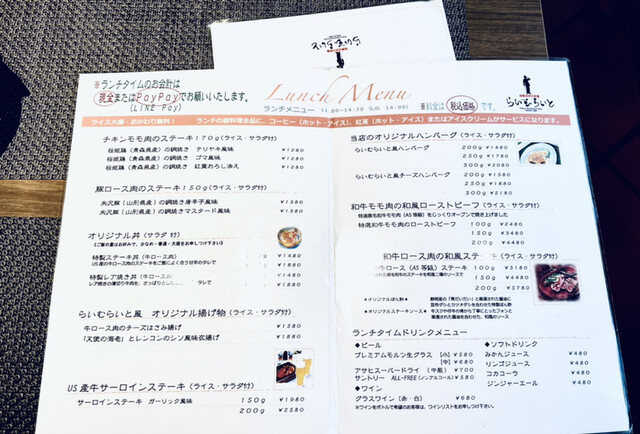 ※ランチタイムのお会計は
現金またはPayPayでお願いいたします。
(LINE Pay)
Lunch Menu
ランチメニュー 11:00-14:30 (L.O. 14:00)
らいむらいと
※料金は 税込価格 です。
ライス大盛・おかわり無料! ランチの御料理全品に、コーヒー(ホット・アイス)、紅茶(ホット・アイス)またはアイスクリームがサービスになります。
チキンモモ肉のステーキ 170g(ライス・サラダ付)
桜姫鶏(青森県産)の網焼き テリヤキ風味 ¥1280
桜姫鶏(青森県産)の網焼き ゴマ風味 ¥1280
桜姫鶏(青森県産)の網焼き 紅葉おろし添え ¥1280
豚ロース肉のステーキ 150g(ライス・サラダ付)
米沢豚(山形県産)の網焼き唐辛子風味 ¥1380
米沢豚(山形県産)の網焼きマスタード風味 ¥1380
オリジナル丼(サラダ付)
(ご飯の量はお好みで、少なめ・普通・大盛をお申しつけ下さい)
特製ステーキ丼(牛ロース肉) ¥1480
US産の牛ロース肉のステーキをご飯によく合う甘辛のタレで
特製レア焼き丼(牛ロース肉) ¥1880
レア焼きの薄切り牛肉を、さっぱりとした タレで
らいむらいと風 オリジナル揚げ物(ライス・サラダ付)
牛ロース肉のチーズはさみ揚げ ¥1580
「天使の海老」とレンコンのシソ風味衣揚げ ¥1380
US産牛サーロインステーキ(ライス・サラダ付)
サーロインステーキ ガーリック風味 150g ¥1980
200g ¥2580
当店のオリジナルハンバーグ(ライス・サラダ付)
らいむらいと風ハンバーグ 200g ¥1480
250g ¥1780
300g ¥2080
らいむらいと風チーズハンバーグ 200g ¥1580
250g ¥1880
300g ¥2180
和牛モモ肉の和風ローストビーフ(ライス・サラダ付)
特選黒毛和牛モモ肉(A5等級)をじっくりオーブンで焼き上げました
特選和牛モモ肉のローストビーフ 100g ¥2480
150g ¥3480
200g ¥4480
和牛ロース肉の和風ステーキ
牛ロース(A5等級)ステーキ 100g ¥3180
150g ¥4480
200g ¥5780
*オリジナルぽん酢*
*オリジナルステーキソース*
ランチタイムドリンクメニュー
◆ビール
プレミアムモルツ生グラス [小] ¥380
[中] ¥680
アサヒスーパードライ (中瓶) ¥700
サントリー ALL-FREE(ノンアルコール) ¥580
◆ワイン
グラスワイン(赤・白) ¥680
※ワインをボトルで希望のお客様は、ワインリストをお申しつけ下さい。
◆ソフトドリンク
みかんジュース ¥480
リンゴジュース ¥480
コカコーラ ¥480
ジンジャーエール ¥480